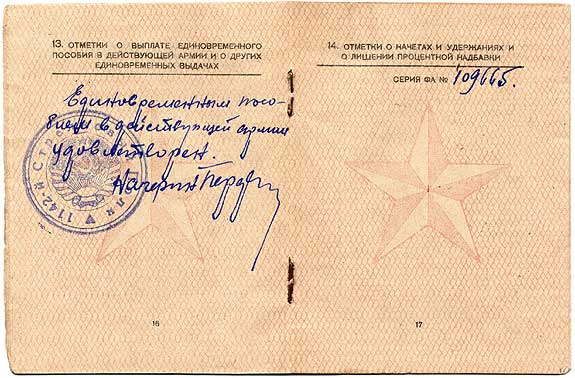 13. ОТМЕТКИ О ВЫПЛАТЕ ЕДИНОВРЕМЕННОГО
ПОСОБИЯ В ДЕЙСТВУЮЩЕЙ АРМИИ И О ДРУГИХ
ЕДИНОВРЕМЕННЫХ ВЫДАЧАХ
Единовременным посо-
бием в действующей армии
удовлетворен.
Начфин
1142-й СТРЕЛКОВЫЙ
16
14. ОТМЕТКИ О НАЧЕТАХ И УДЕРЖАНИЯХ И
О ЛИШЕНИИ ПРОЦЕНТНОЙ НАДБАВКИ
СЕРИЯ ФА № 109665.
17